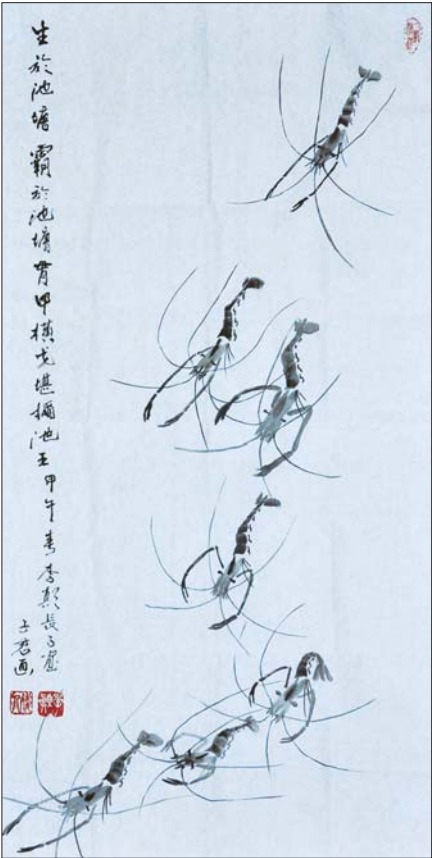 生於池塘霸於池塘胄甲橫戈堪稱池王甲午春李顛長子
子君画